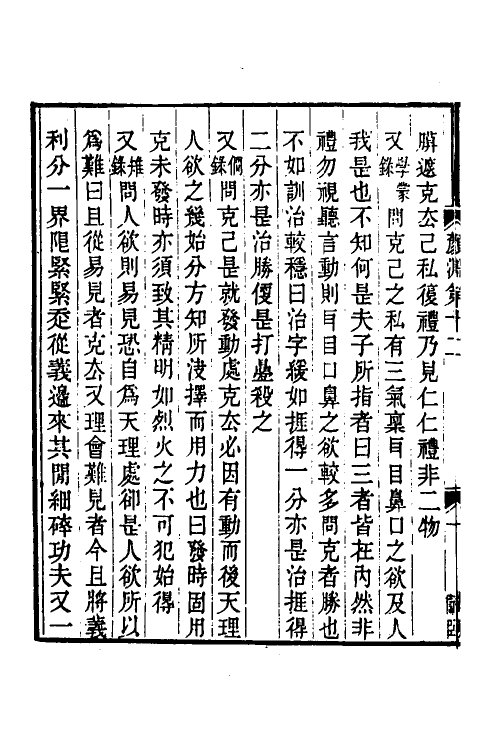 顏淵第十二
一
辟邊克去己私復禮乃見仁仁禮非二物
又學蒙錄問克己之私有三氣稟耳目鼻口之欲及人
我是也不知何是夫子所指者曰三者皆在內然非
禮勿視聽言動則耳目口鼻之欲較多問克者勝也
不如訓治較穩曰治字緩如捱得一分亦是治捱得
二分亦是治勝便是打疊殺之
又僩錄問克己是就發動處克去必因有動而後天理
人欲之幾始分方知所决擇而用力也曰發時固用
克未發時亦須致其精明如烈火之不可犯始得
又雉錄問人欲則易見恐自爲天理處卻是人欲所以
爲難曰且從易見者克去又理會難見者今且將義
利分一界限緊緊走從義邊來其閒細碎功夫又一